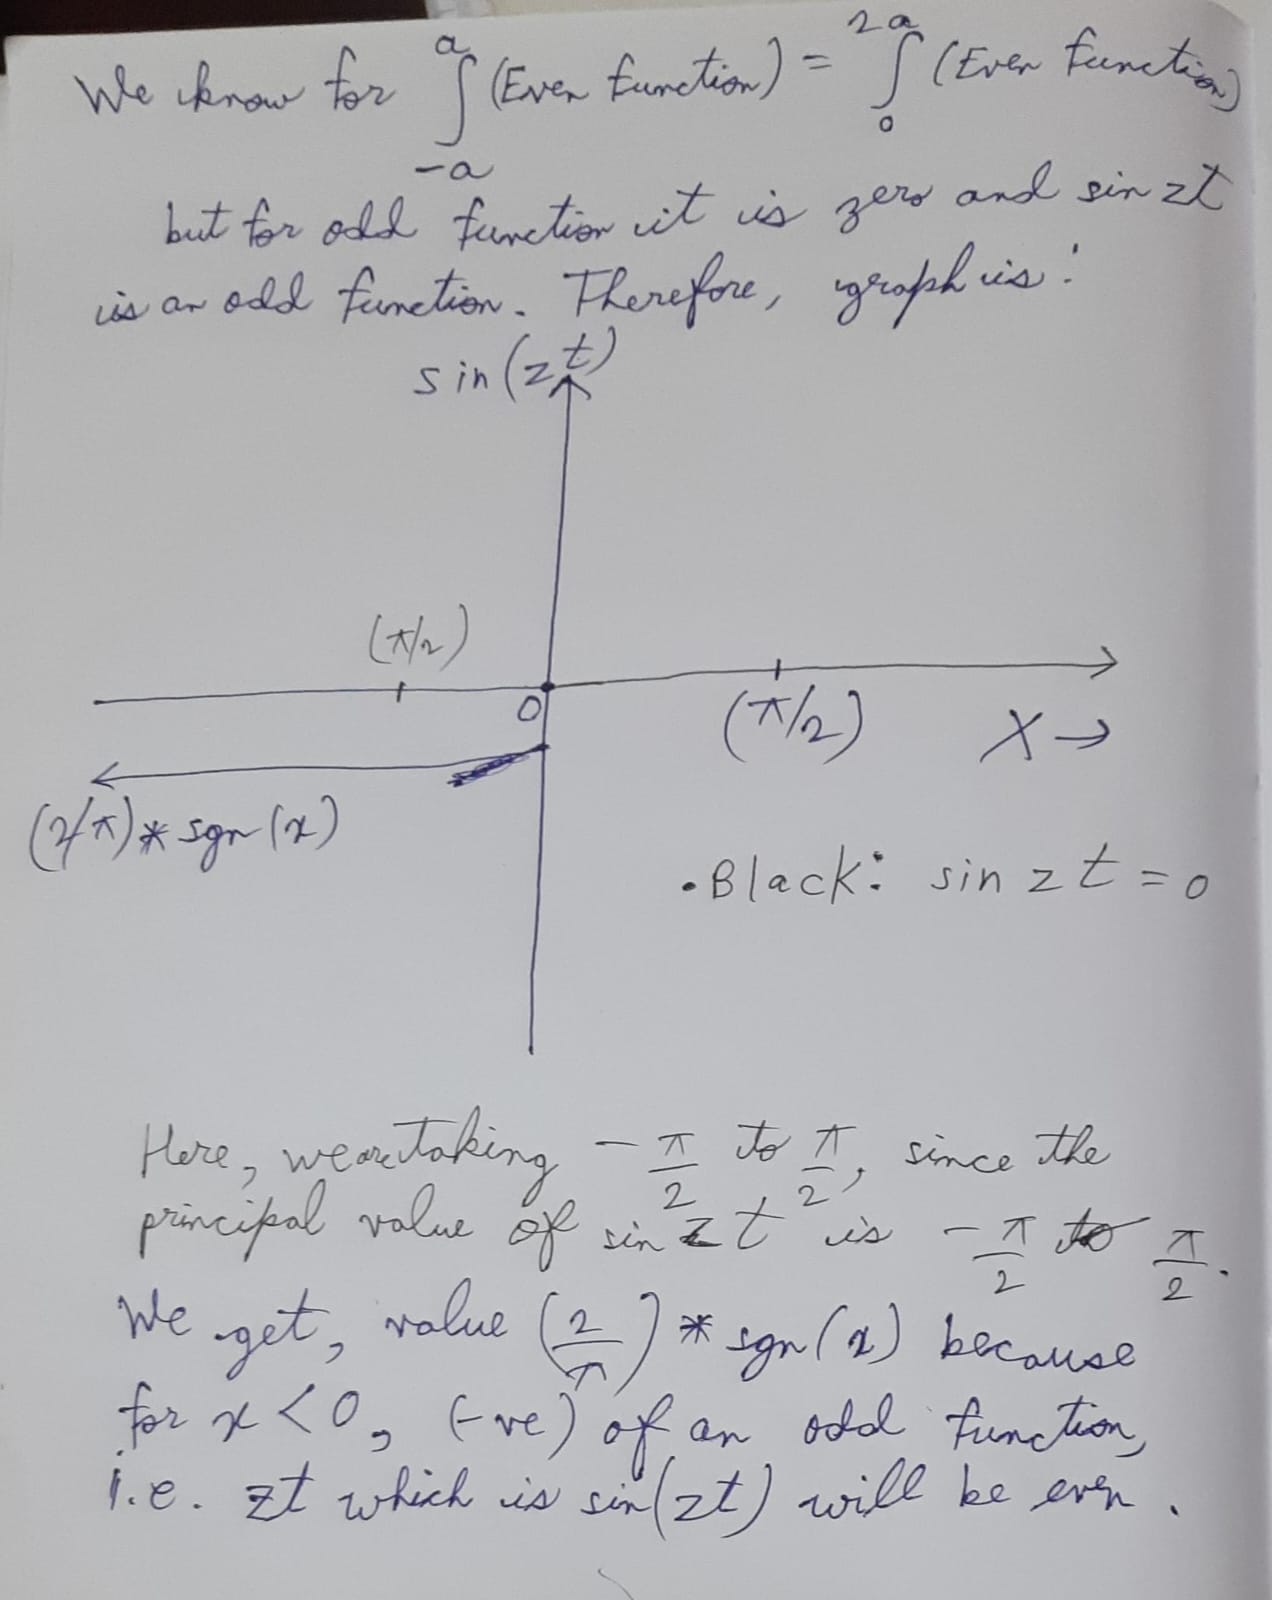 We know for ∫_{-a}^{a} (Even function) = ∫_{0}^{2a} (Even function)
but for odd function it is zero and sin zt
is an odd function. Therefore, graph is:
sin(zt)
(π/2)
0
(π/2) X→
(2/π)* sgn(x)
• Black: sin zt = 0
Here, we are taking -π/2 to π/2, since the
principal value of sin zt is -π/2 to π/2.
We get, value (2/π) * sgn(x) because
for x < 0, (-ve) of an odd function,
i.e. zt which is sin(zt) will be even.